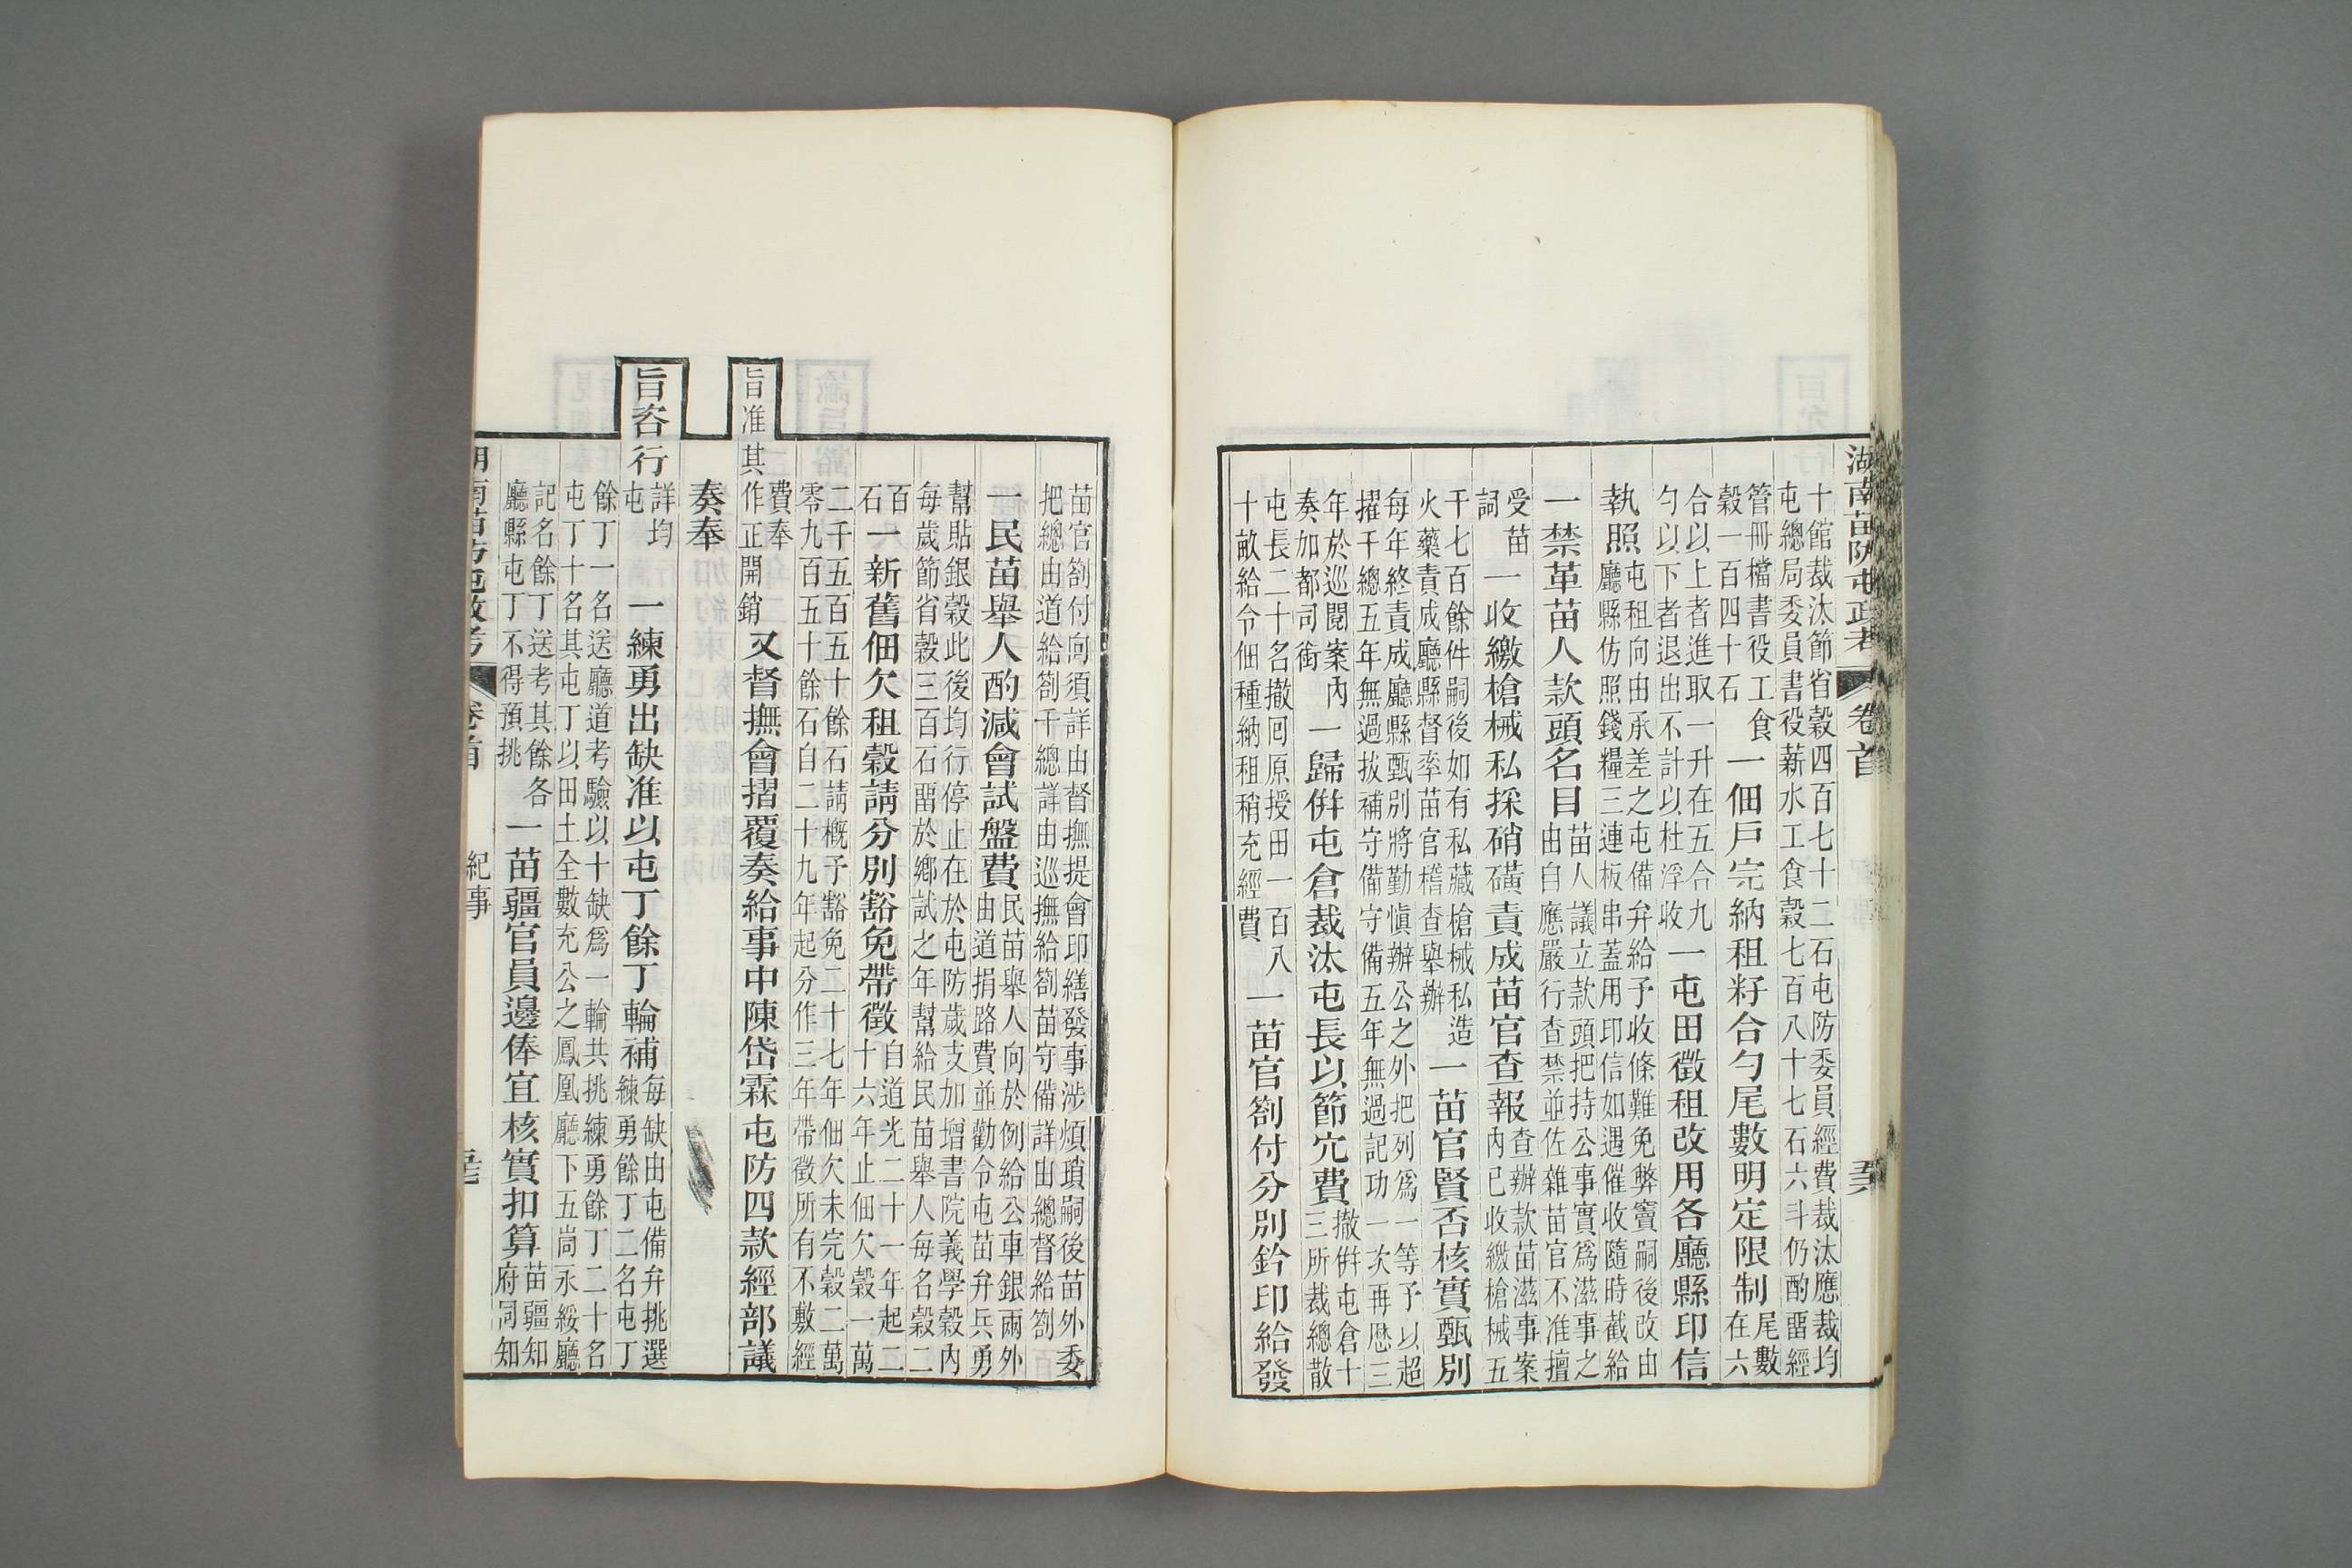 湖南苗防屯政考 卷首
十館裁汰節省穀四百七十二石屯防委員經費裁汰應裁均
屯總局委員書役薪水工食穀七百八十七石六斗仍酌畱經
管冊檔書役工食
穀一百四十石
一佃戶完納租籽合勺尾數明定限制
尾數
在六
合以上者進取一升在五合九
勺以下者退出不計以杜浮收
一屯田徵租改用各廳縣印信
執照
屯租向由承差之屯備弁給予收條難免弊竇嗣後改由
廳縣仿照錢糧三連板串蓋用印信如遇催收隨時截給
一禁革苗人款頭名目
苗人議立款頭把持公事實爲滋事之
由自應嚴行查禁並佐雜苗官不准擅
受苗
詞
一收繳槍械私採硝磺責成苗官查報
查辦款苗滋事案
內已收繳槍械五
千七百餘件嗣後如有私藏槍械私造
火藥責成廳縣督率苗官稽查舉辦
一苗官賢否核實甄別
每年終責成廳縣甄別將勤愼辦公之外把列爲一等予以超
擢千總五年無過拔補守備守備五年無過記功一次再歷三
年於巡閱案內
奏加都司銜
一歸併屯倉裁汰屯長以節冗費
撤併屯倉十
三所裁總散
屯長二十名撤回原授田一百八
十畝給令佃種納租稍充經費
一苗官劄付分別鈐印給發
苗官劄付向須詳由督撫提會印繕發事涉煩瑣嗣後苗外委
把總由道給劄千總詳由巡撫給劄苗守備詳由總督給劄
一民苗舉人酌減會試盤費
民苗舉人向於例給公車銀兩外
由道捐路費並勸令屯苗弁兵勇
幫貼銀穀此後均行停止在於屯防歲支加增書院義學穀內
每歲節省穀三百石畱於鄉試之年幫給民苗舉人每名穀二
百
石
一新舊佃欠租穀請分別豁免帶徵
自道光二十一年起二
十六年止佃欠穀一萬
二千五百五十餘石請概予豁免二十七年佃欠未完穀二萬
零九百五十餘石自二十九年起分作三年帶徵所有不敷經
費奉
旨准其作正開銷
又督撫會摺覆奏給事中陳岱霖屯防四款經部議
奏奉
旨咨行
詳均
屯
一練勇出缺准以屯丁餘丁輪補
每缺由屯備弁挑選
練勇餘丁二名屯丁
餘丁一名送廳道考驗以十缺爲一輪共挑練勇餘丁二十名
屯丁十名其屯丁以田土全數充公之鳳凰廳下五峝永綏廳
記名餘丁送考其餘各
廳縣屯丁不得預挑
一苗疆官員邊俸宜核實扣算
苗疆知
府同知
湖南苗防屯政考 卷首 紀事